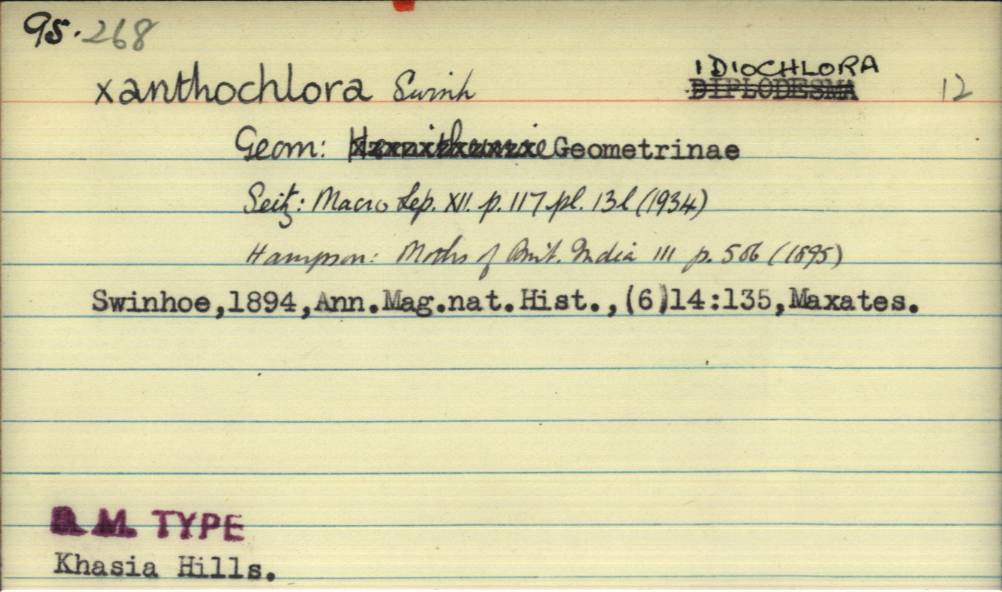 95.268
IDIOCHLORA
xanthochlora Swinh DIPLODESMA 12
Geom: Geometrinae
Seitz: Macro Lep. XII. p. 117. pl. 13l (1934)
Hampson: Moths of Brit. India III p. 506 (1895)
Swinhoe,1894,Ann.Mag.nat.Hist.,(6)14:135,Maxates.
B.M. TYPE
Khasia Hills.